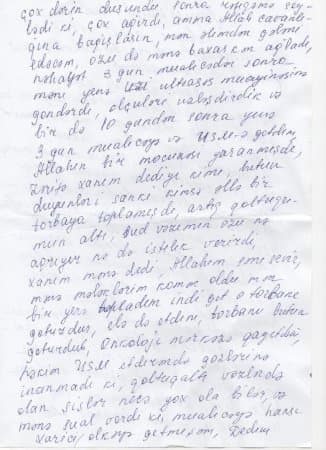 çox dərin düşündü sonra
ki, çox ağırdı, amma Allah cavanlı-
ğına bağışlasın, mən əlimdən gələni
edəcəm, özü də mənə baxarkən ağladı,
nəhayət 3 gün müalicədən sonra
məni yenə ultrasəs müayinəsinə
göndərdi, ölçülərə
bir də 10 gündən sonra yenə
3 gün müalicəyə və USM-ə getdim,
Allahın bir möcüzəsi yaranmışdı,
xanım dediyi kimi, bütün
düyünləri sanki kimsə elə bir
torbaya toplamışdı, artıq qoltuğu-
mun altı, süd vəzimin özü nə
ağrıyır nə də istilik verirdi,
xanım mənə dedi, Allahım
mənə mələklərim kömək oldu mən
bir yerə topladım indi get o torbanı
götürdüs, elə də etdim, torbanı bütün
götürdük, Onkoloji mərkəzə qayıtdıq,
həkim USM etdirəndə gözlərinə
inanmadı ki, qoltuqaltı vəzilərdə
olan şişlər necə yox ola bilər, və
mənə sual verdi ki, müalicəyə hansı
xarici ölkəyə getmisən, dedim